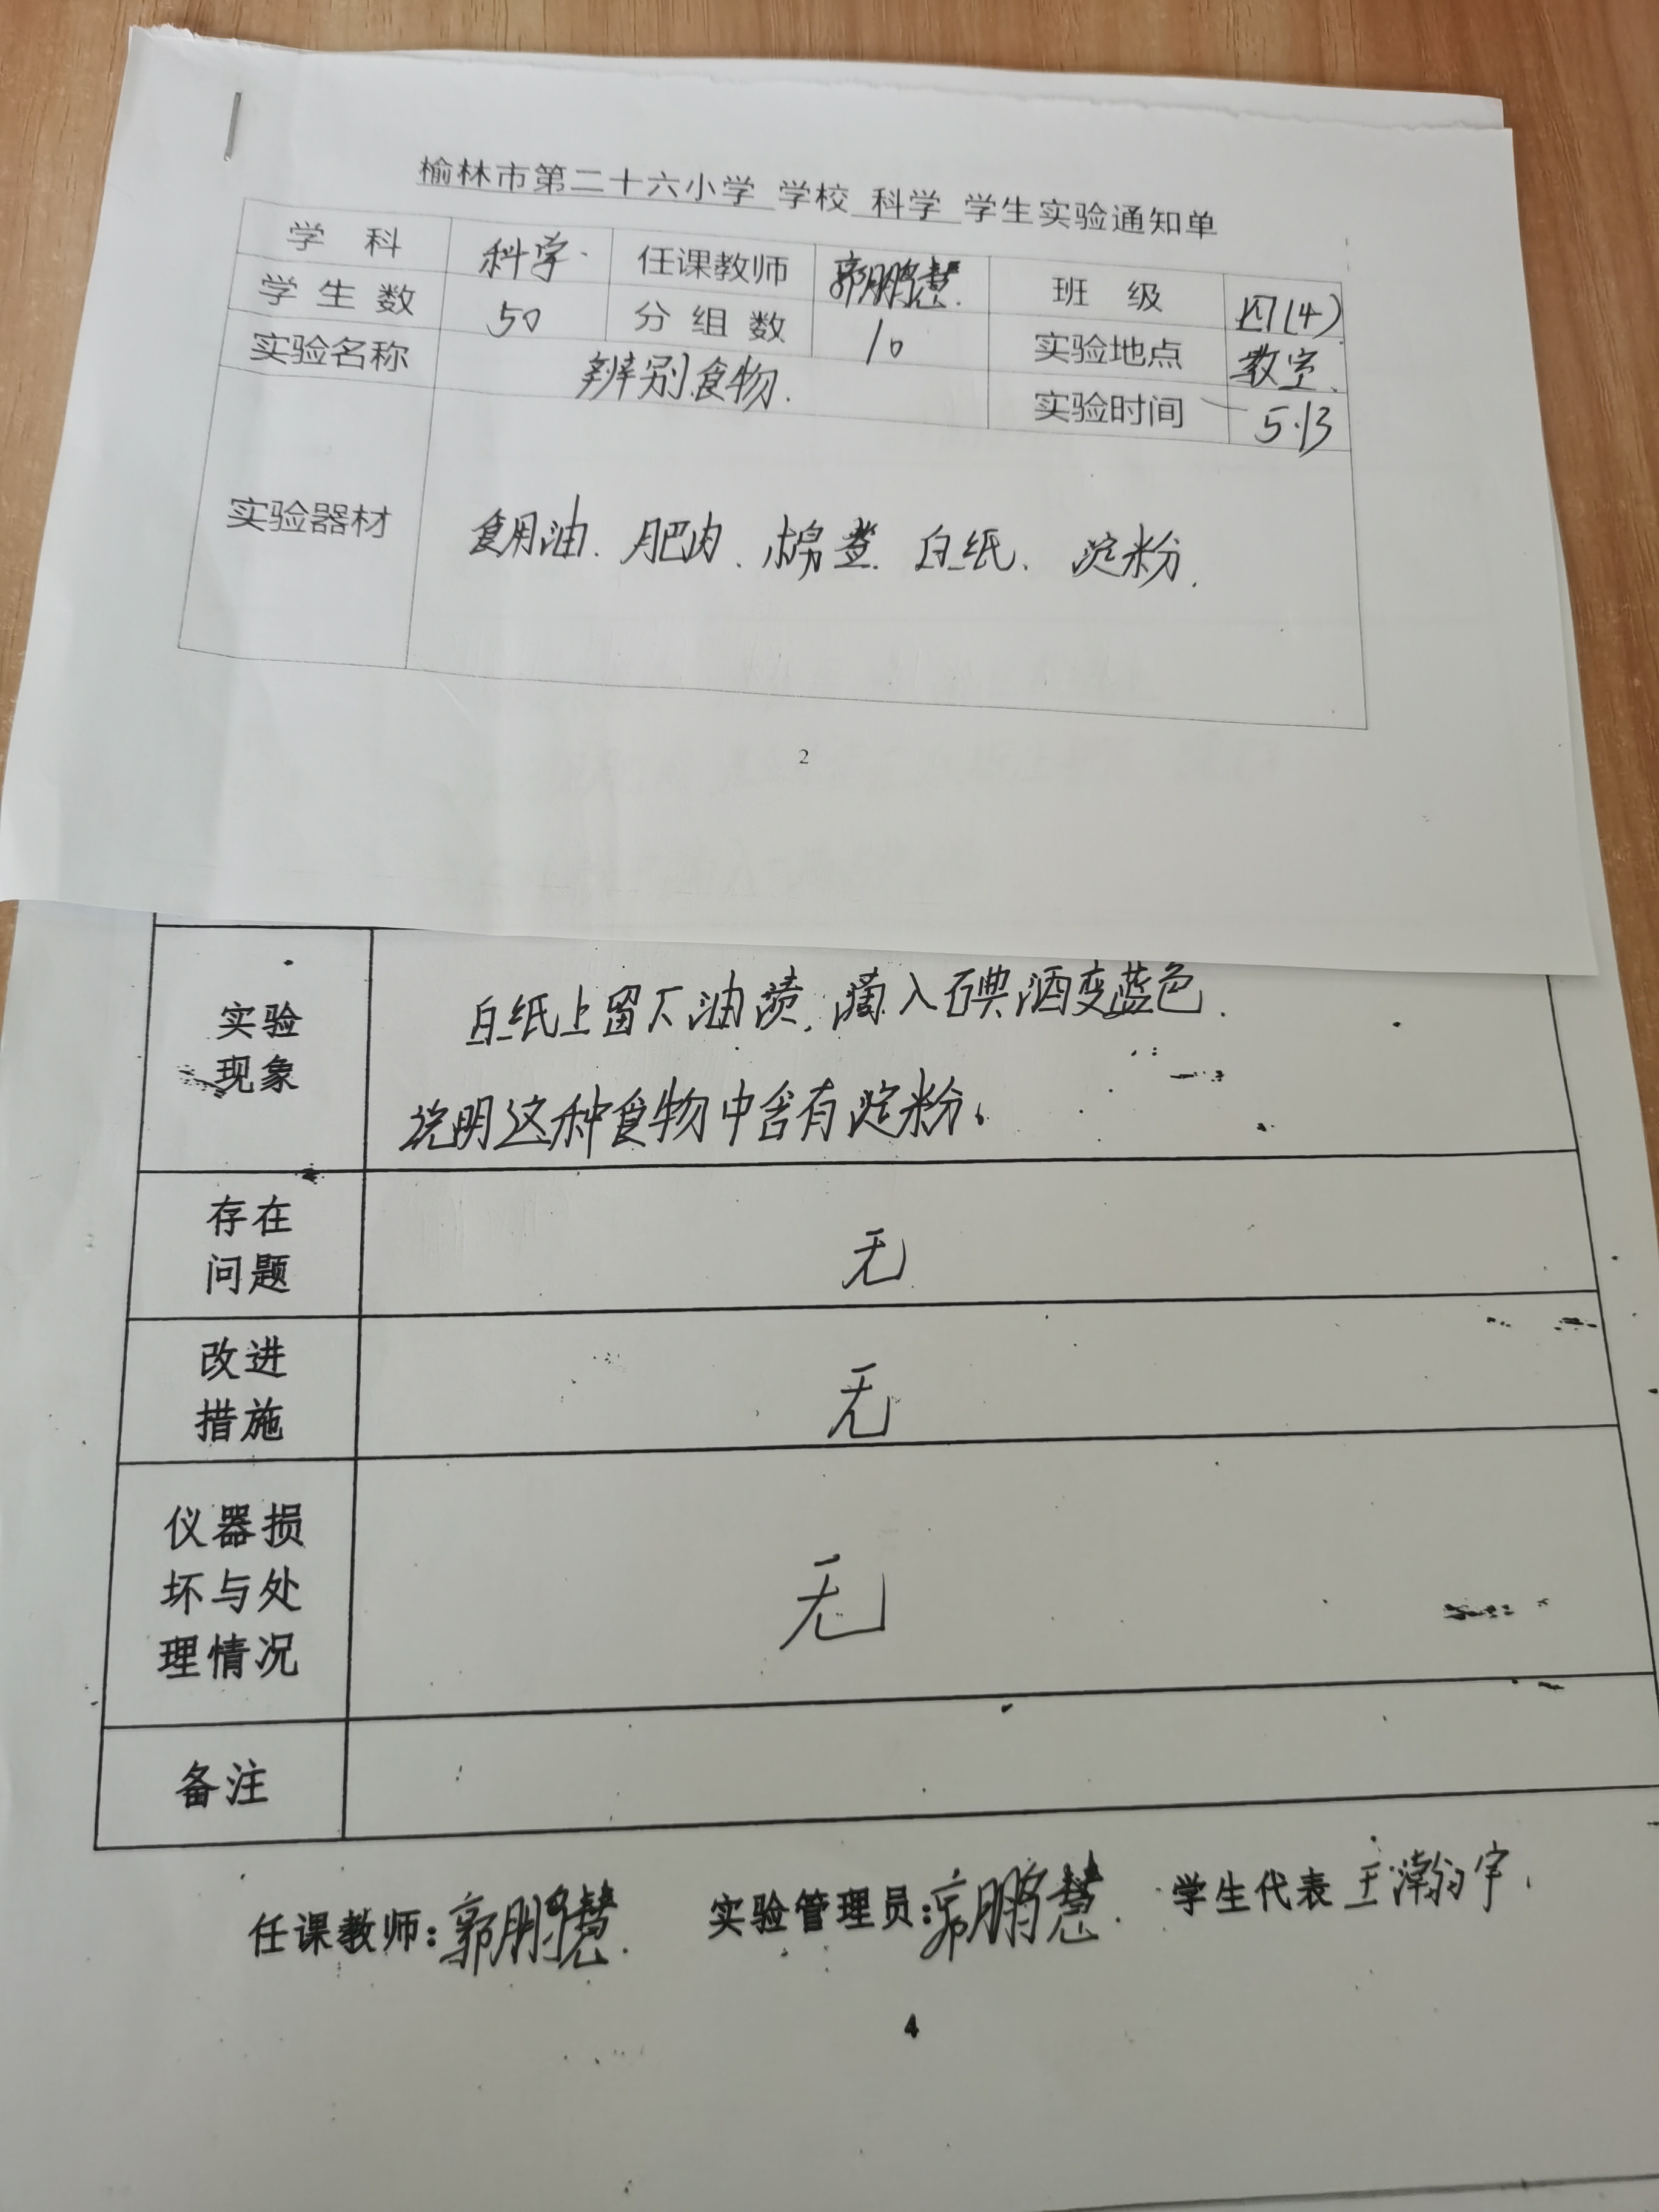 榆林市第二十六小学 学校 科学 学生实验通知单
学 科 科学 任课教师 郭鹏慧 班 级 四(4)
学 生 数 50 分 组 数 10 实验地点 教室
实验名称 辨别食物 实验时间 5.13
实验器材 食用油、肥肉、棉签、白纸、淀粉
2
实验现象 白纸上留下油渍,滴入碘酒变蓝色
说明这种食物中含有淀粉。
存在问题 无
改进措施 无
仪器损坏与处理情况 无
备注
任课教师:郭鹏慧 实验管理员:郭鹏慧 学生代表 王瀚宇
4